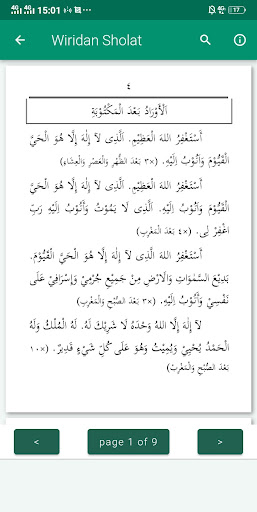 4G 4G 15:01
17
Wiridan Sholat
٤
اَلْأَوْرَادُ بَعْدَ الْمَكْتُوْبَةِ
أَسْتَغْفِرُ اللهَ الْعَظِيْمِ. اَلَّذِى لآ إِلٰهَ إِلَّا هُوَ الْحَيَّ
الْقَيُّوْمَ وَأَتُوْبُ إِلَيْهِ. (×٣ بَعْدَ الظُّهْرِ وَالْعَصْرِ وَالْعِشَاءِ)
أَسْتَغْفِرُ اللهَ الْعَظِيْمِ. اَلَّذِى لآ إِلٰهَ إِلَّا هُوَ الْحَيَّ
الْقَيُّوْمَ وَأَتُوْبُ إِلَيْهِ. اَلَّذِى لَا يَمُوْتُ وَأَتُوْبُ إِلَيْهِ رَبِّ
اغْفِرْ لِى. (×٤ بَعْدَ الْمَغْرِبِ)
أَسْتَغْفِرُ اللهَ الَّذِى لآ إِلٰهَ إِلَّا هُوَ الْحَيَّ الْقَيُّوْمَ.
بَدِيْعَ السَّمٰوَاتِ وَالْاَرْضِ مِنْ جَمِيْعِ جُرْمِيْ وَإِسْرَافِيْ عَلَى
نَفْسِيْ وَأَتُوْبُ إِلَيْهِ. (×٣ بَعْدَ الصُّبْحِ وَالْمَغْرِبِ)
لآ إِلٰهَ إِلَّا اللهُ وَحْدَهُ لَا شَرِيْكَ لَهُ. لَهُ الْمُلْكُ وَلَهُ
الْحَمْدُ يُحْيِيْ وَيُمِيْتُ وَهُوَ عَلَى كُلِّ شَيْءٍ قَدِيْرٌ. (×١٠
بَعْدَ الصُّبْحِ وَالْمَغْرِبِ)
< page 1 of 9 >